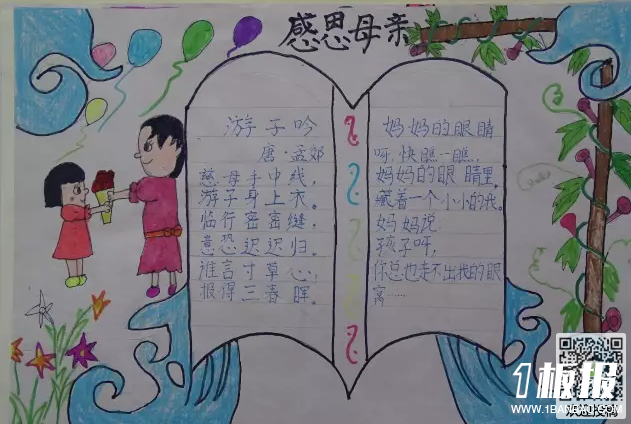 感恩母亲
游子吟
唐·孟郊
慈母手中线，
游子身上衣。
临行密密缝，
意恐迟迟归。
谁言寸草心，
报得三春晖。
妈妈的眼睛
呀，快瞧一瞧，
妈妈的眼睛里，
藏着一个小小的我。
妈妈说
孩子呀，
你总也走不出我的眼
离……
1板报
WWW.1BANBAO.COM
欢迎投稿